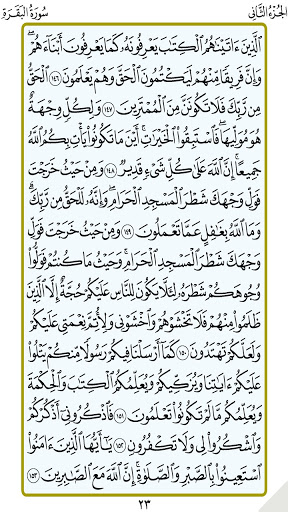 الجزء الثاني
سورة البقرة
الَّذِينَ ءَاتَيْنَٰهُمُ الْكِتَٰبَ يَعْرِفُونَهُۥ كَمَا يَعْرِفُونَ أَبْنَآءَهُمْ ۖ
وَإِنَّ فَرِيقًا مِّنْهُمْ لَيَكْتُمُونَ الْحَقَّ وَهُمْ يَعْلَمُونَ ١٤٦ الْحَقُّ
مِن رَّبِّكَ فَلَا تَكُونَنَّ مِنَ الْمُمْتَرِينَ ١٤٧ وَلِكُلٍّ وِجْهَةٌ
هُوَ مُوَلِّيهَا ۖ فَاسْتَبِقُوا الْخَيْرَٰتِ ۚ أَيْنَ مَا تَكُونُوا يَأْتِ بِكُمُ اللَّهُ
جَمِيعًا ۚ إِنَّ اللَّهَ عَلَىٰ كُلِّ شَىْءٍ قَدِيرٌ ١٤٨ وَمِنْ حَيْثُ خَرَجْتَ
فَوَلِّ وَجْهَكَ شَطْرَ الْمَسْجِدِ الْحَرَامِ ۖ وَإِنَّهُۥ لَلْحَقُّ مِن رَّبِّكَ ۗ
وَمَا اللَّهُ بِغَٰفِلٍ عَمَّا تَعْمَلُونَ ١٤٩ وَمِنْ حَيْثُ خَرَجْتَ فَوَلِّ
وَجْهَكَ شَطْرَ الْمَسْجِدِ الْحَرَامِ ۚ وَحَيْثُ مَا كُنتُمْ فَوَلُّوا
وُجُوهَكُمْ شَطْرَهُۥ لِئَلَّا يَكُونَ لِلنَّاسِ عَلَيْكُمْ حُجَّةٌ إِلَّا الَّذِينَ
ظَلَمُوا مِنْهُمْ فَلَا تَخْشَوْهُمْ وَاخْشَوْنِى وَلِأُتِمَّ نِعْمَتِى عَلَيْكُمْ
وَلَعَلَّكُمْ تَهْتَدُونَ ١٥٠ كَمَآ أَرْسَلْنَا فِيكُمْ رَسُولًا مِّنكُمْ يَتْلُوا
عَلَيْكُمْ ءَايَٰتِنَا وَيُزَكِّيكُمْ وَيُعَلِّمُكُمُ الْكِتَٰبَ وَالْحِكْمَةَ
وَيُعَلِّمُكُم مَّا لَمْ تَكُونُوا تَعْلَمُونَ ١٥١ فَاذْكُرُونِىٓ أَذْكُرْكُمْ
وَاشْكُرُوا لِى وَلَا تَكْفُرُونِ ١٥٢ يَٰٓأَيُّهَا الَّذِينَ ءَامَنُوا
اسْتَعِينُوا بِالصَّبْرِ وَالصَّلَوٰةِ ۚ إِنَّ اللَّهَ مَعَ الصَّٰبِرِينَ ١٥٣
٢٣